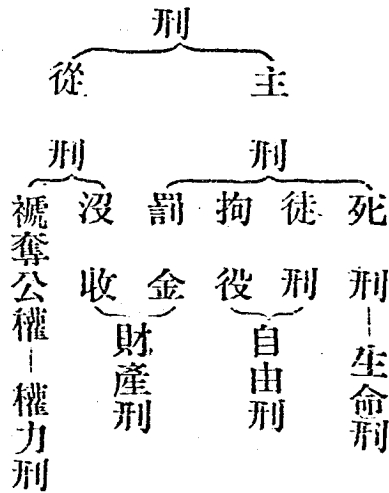 刑
主刑
從刑
死刑－生命刑
徒刑
拘役
自由刑
罰金
沒收
財產刑
褫奪公權－權力刑